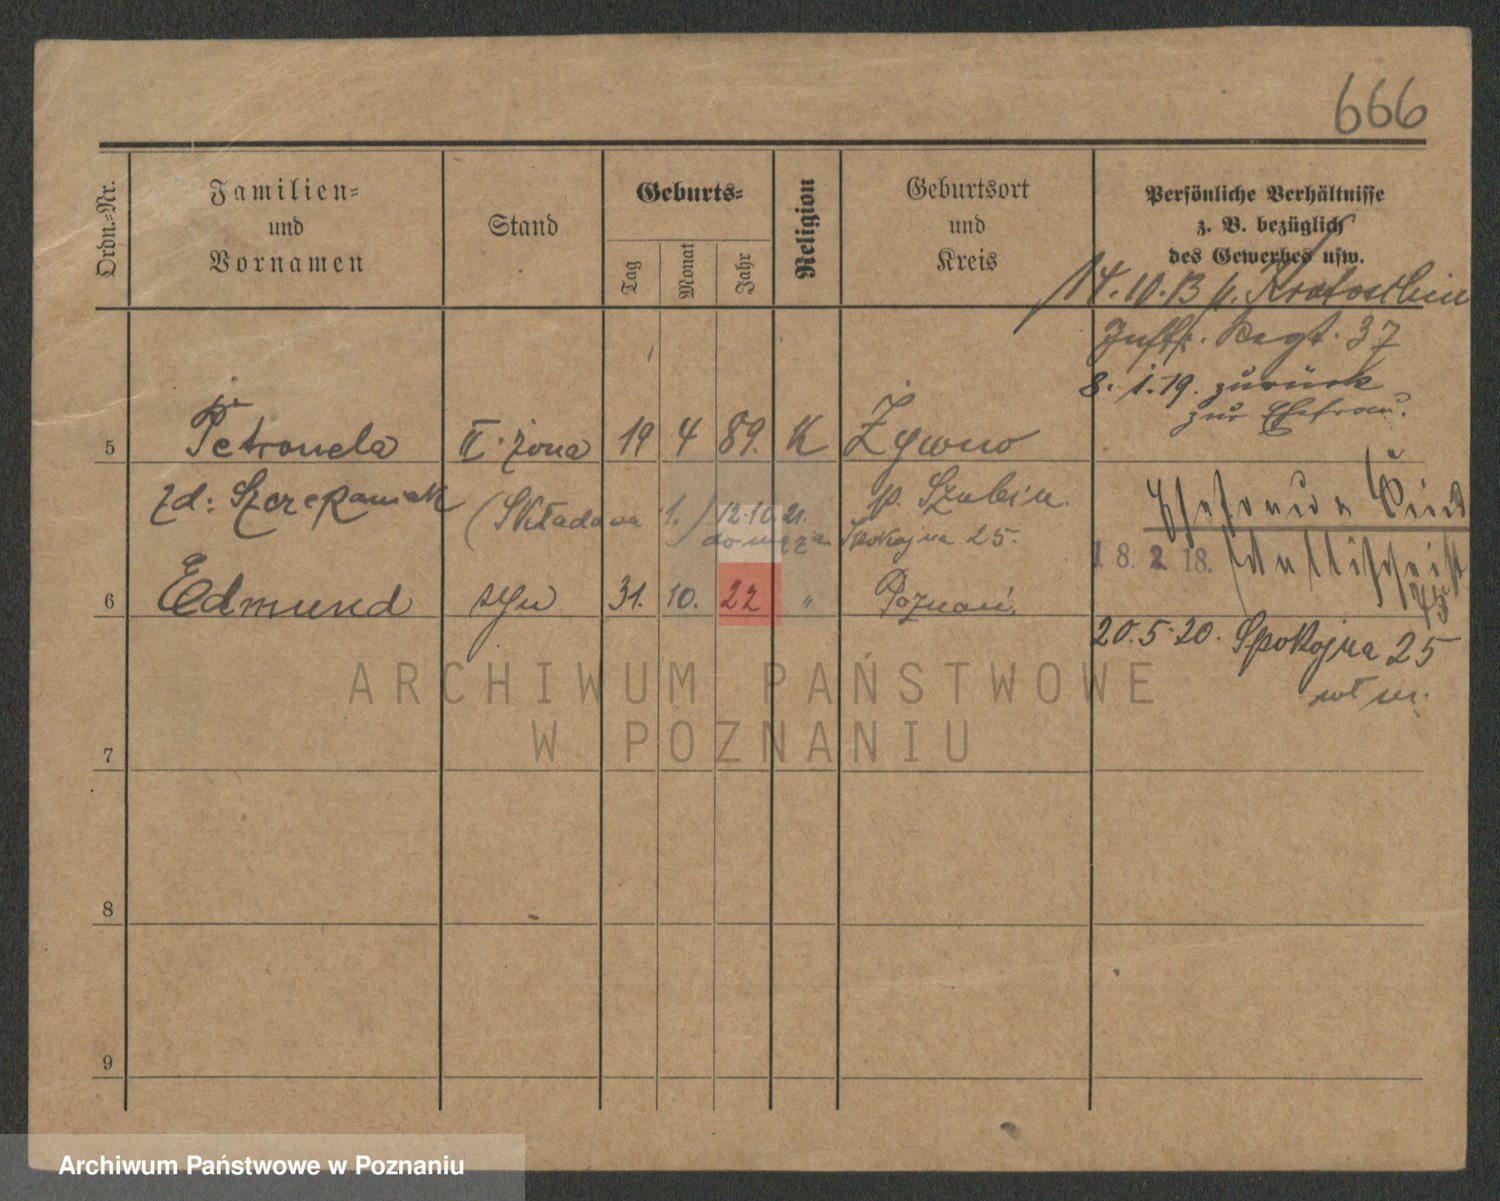 666
Ordn.-Nr.
Familien-
und
Vornamen
Stand
Geburts-
Tag
Monat
Jahr
Religion
Geburtsort
und
Kreis
Persönliche Verhältnisse
z. B. bezüglich
des Gewerbes usw.
14.10.13 Krotoschin
Inftr. Regt. 37
8. 1. 19. zurück
zur Ehefrau.
5 Petronela II. żona 19 4 89. K Żywno
zd: Szczepaniak (Składowa 1.) 12.10.21. p. Szubin
do męża Spokojna 25.
Ehefrau u Kind
18. 2. 18.
6 Edmund syn 31. 10. 22 " Poznań
20.5.20. Spokojna 25
wł m.
7
8
9
ARCHIWUM PAŃSTWOWE
W POZNANIU
Archiwum Państwowe w Poznaniu